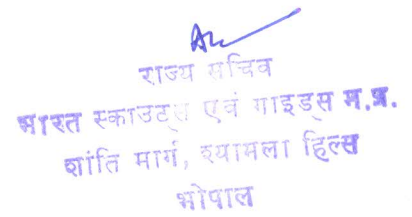 राज्य सचिव
भारत स्काउट्स एवं गाइड्स म.प्र.
शांति मार्ग, श्यामला हिल्स
भोपाल